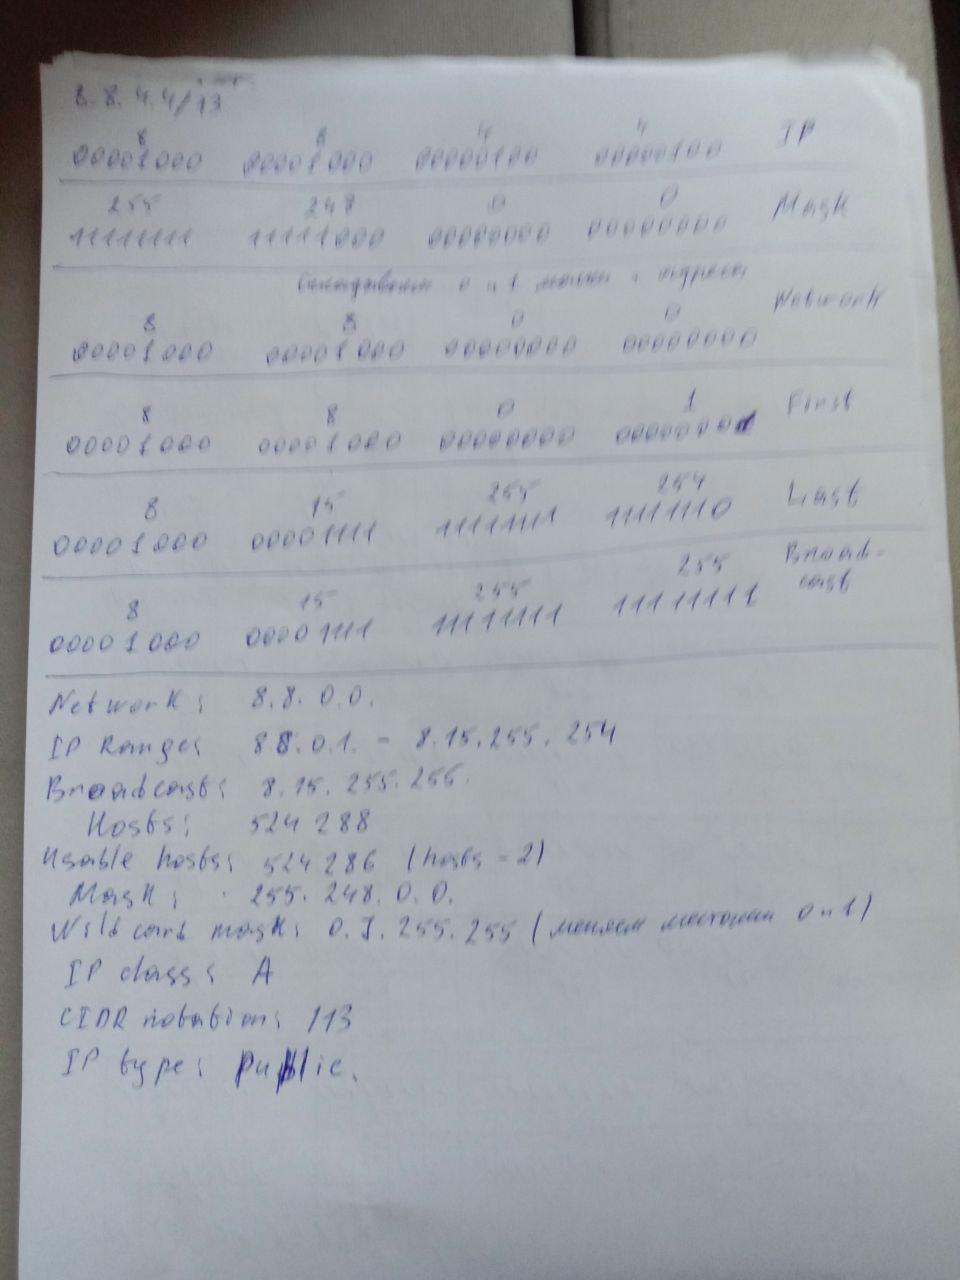 8.8.4.4/13
8 8 4 4
00001000 00001000 00000100 00000100 IP
255 248 0 0
11111111 11111000 00000000 00000000 Mask
Складываем 0 и 1 маски и адреса
8 8 0 0 Network
00001000 00001000 00000000 00000000
8 8 0 1 First
00001000 00001000 00000000 00000001
8 15 255 254 Last
00001000 00001111 11111111 11111110
8 15 255 255 Broad-
00001000 00001111 11111111 11111111 cast
Network: 8.8.0.0.
IP Range: 8.8.0.1. - 8.15.255.254
Broadcast: 8.15.255.255.
Hosts: 524 288
Usable hosts: 524 286 (hosts - 2)
Mask: 255.248.0.0.
Wildcard mask: 0.7.255.255 (меняем местами 0 и 1)
IP class: A
CIDR notation: /13
IP type: public.